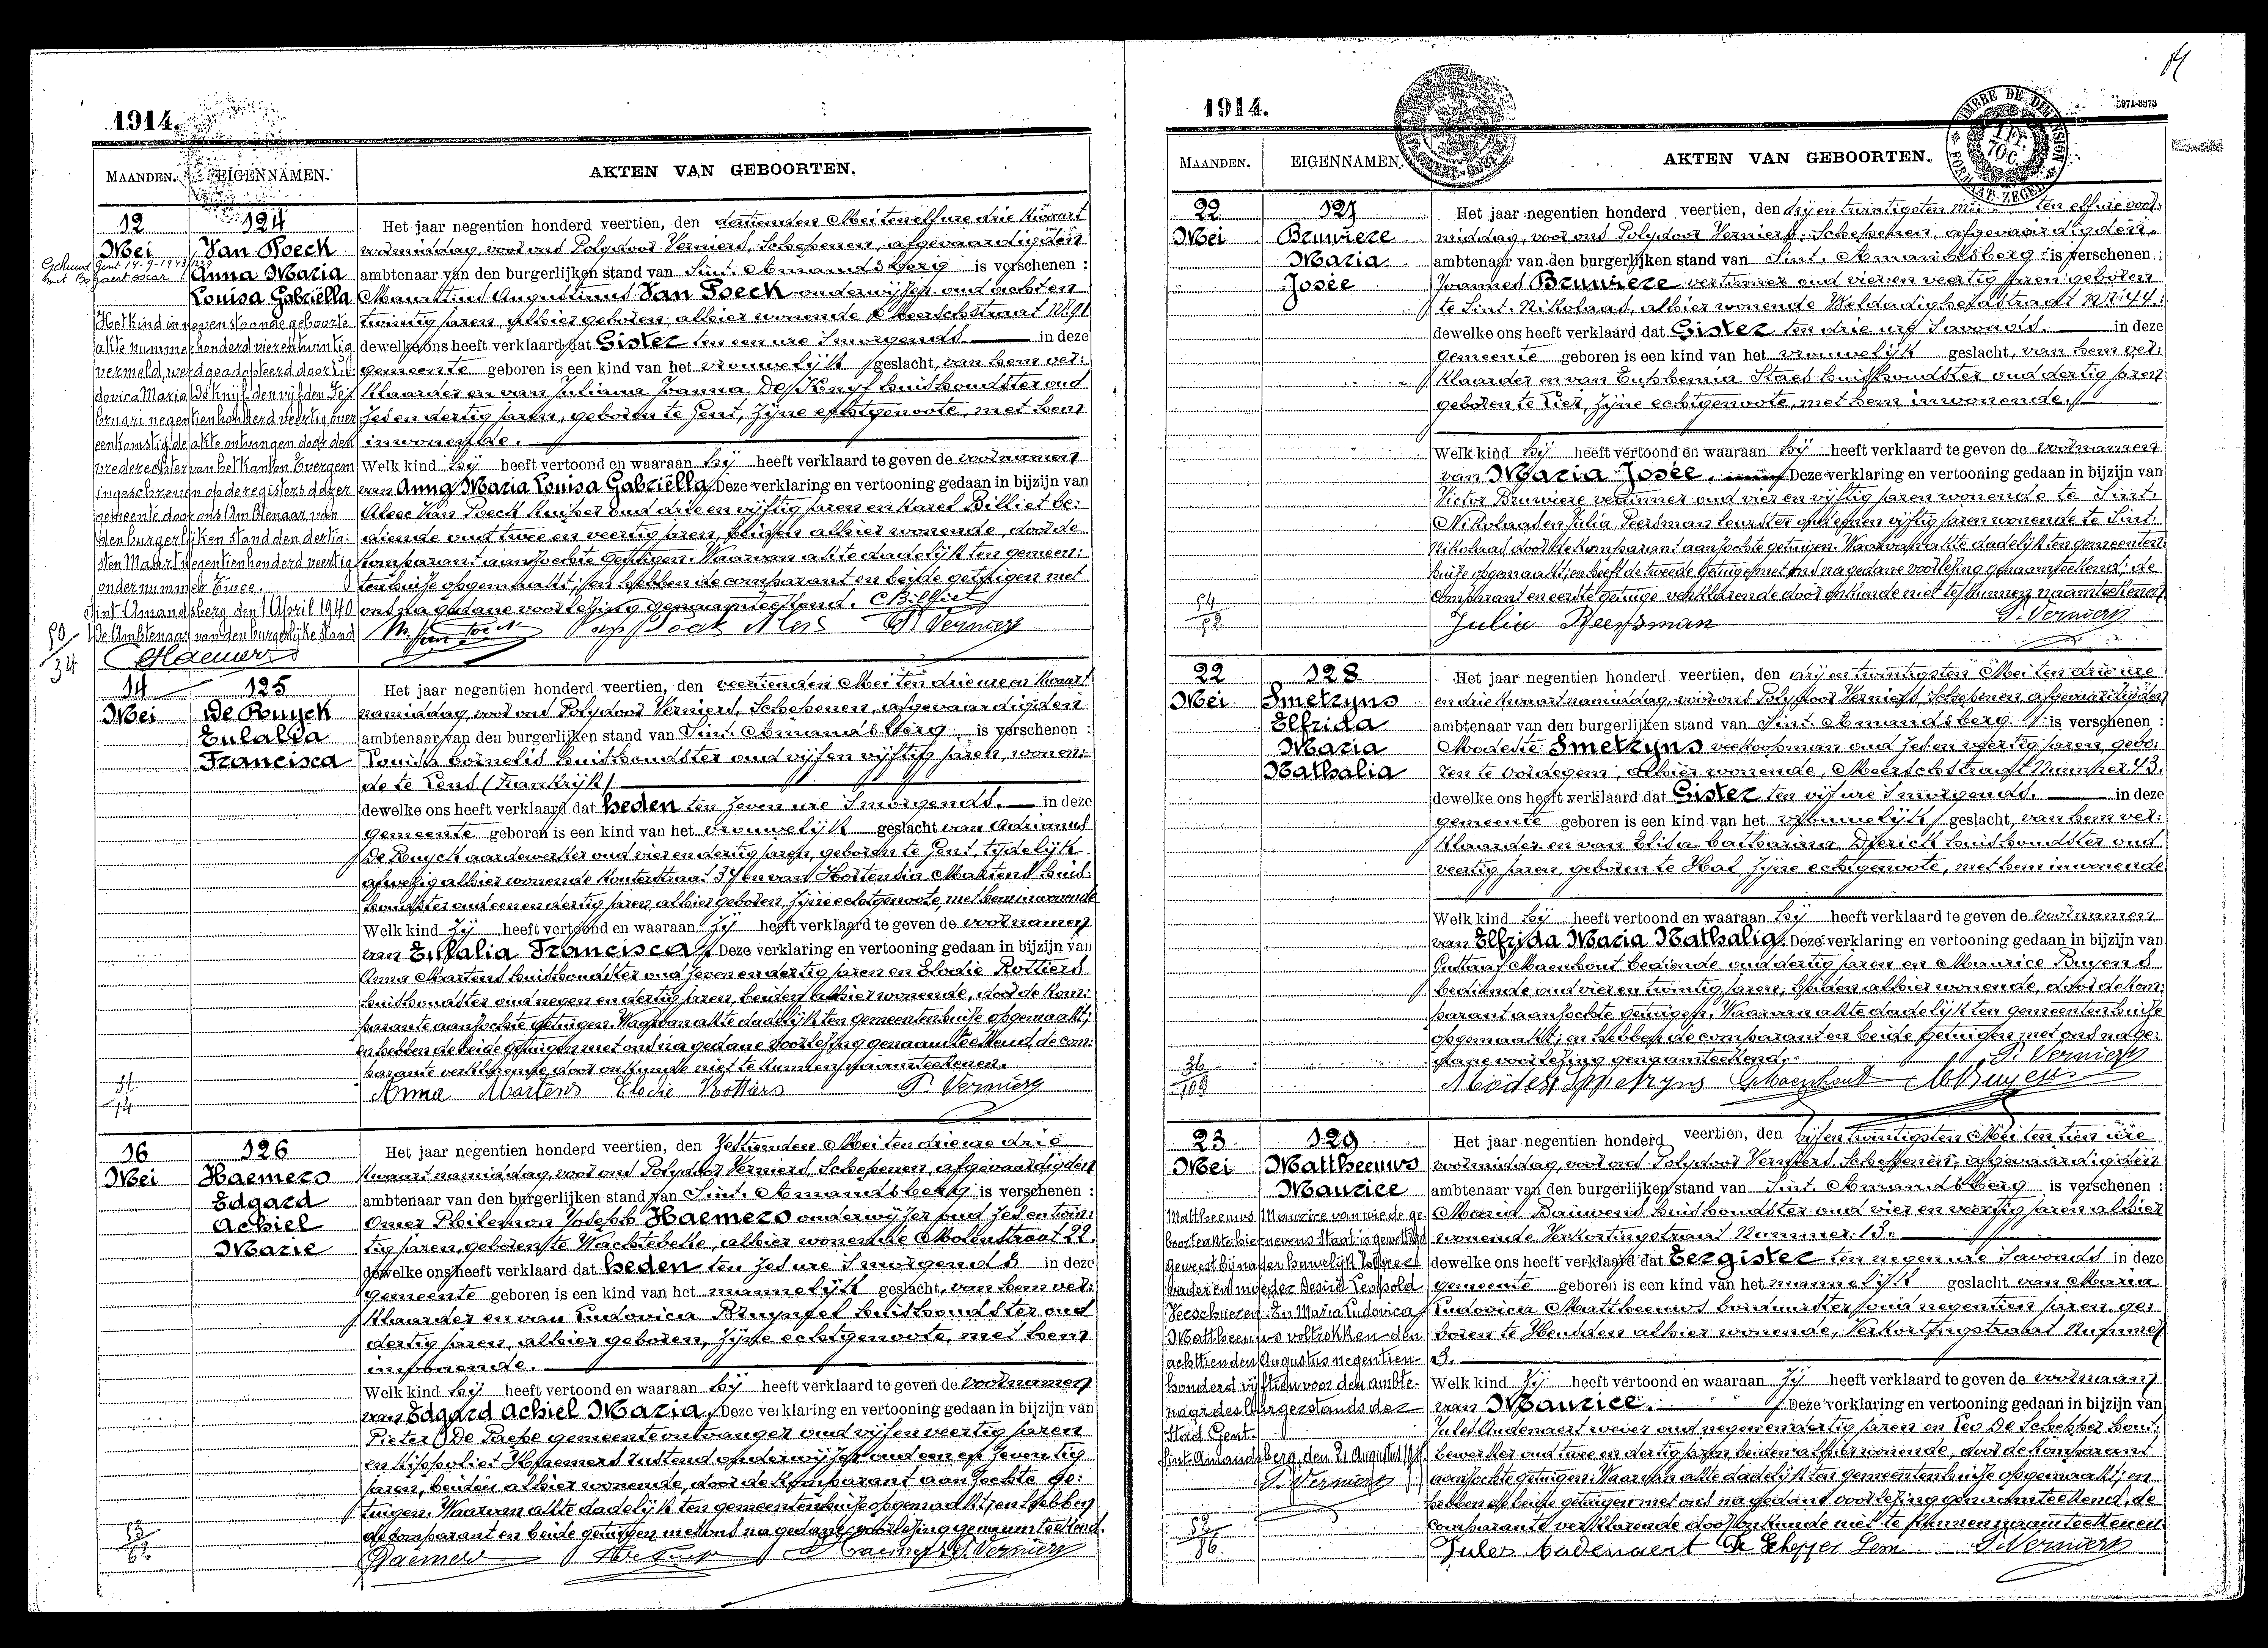 1914.
MAANDEN. EIGENNAMEN. AKTEN VAN GEBOORTEN.
12 Mei
124
Van Poeck
Anna Maria
Louisa Gabriella
Gehuwd Gent 14-9-1943
met Bogaert oscar
Het kind in nevenstaande geboorte
akte nummer honderd vierentwintig
vermeld, werd geadopteerd door Lu-
dovica Maria De Knijf, den vijfden Fe-
bruari negentienhonderd veertig over-
eenkomstig de akte ontvangen door den
vrederechter van het kanton Evergem
ingeschreven op de registers dezer
gemeente door ons Ambtenaar van
den burgerlijken stand den dertig-
sten Maart negentienhonderd veertig
onder nummer twee.
Sint-Amandsberg, den 1 April 1940
De Ambtenaar van den burgerlijke stand
50/34
Het jaar negentien honderd veertien, den dertienden Mei ten elf ure drie kwaart
voormiddag, voor ons Polydoor Verniers, Schepenen, afgevaardigden
ambtenaar van den burgerlijken stand van Sint. Amandsberg is verschenen :
Augustinus Van Poeck onderwijzer oud achten
twintig jaren, alhier geboren, alhier wonende Meerschstraat Nr 91
dewelke ons heeft verklaard dat Gister ten een ure 's morgends in deze
gemeente geboren is een kind van het vrouwelijk geslacht, van hem ver:
klaarder en van Juliana Joanna De Knyf huishoudster oud
zes en dertig jaren, geboren te Gent, zijne echtgenoote, met hem
inwonende.
Welk kind hij heeft vertoond en waaraan hij heeft verklaard te geven de voornamen
van Anna Maria Louisa Gabriëlla Deze verklaring en vertooning gedaan in bijzijn van
Aloïs Van Poeck kuiper oud drie en vijftig jaren en Karel Billiet be:
diende oud twee en veertig jaren, beiden alhier wonende, door de
komparant aanzochte getuigen. Waarvan akte dadelijk ten gemeen:
tenhuize opgemaakt; en hebben de comparant en beide getuigen met
ons na gedane voorlezing genaamteekend. CBilliet
P. Verniers
14 Mei
125
De Ruyck
Eulalia
Francisca
Het jaar negentien honderd veertien, den veertienden Mei ten drie ure en kwaart
namiddag, voor ons Polydoor Verniers, Schepenen, afgevaardigden
ambtenaar van den burgerlijken stand van Sint. Amandsberg is verschenen :
Cornelis huishoudster oud vijf en vijftig jaren, wonen:
de te Lens (Frankrijk)
dewelke ons heeft verklaard dat heden ten zeven ure 's morgends. in deze
gemeente geboren is een kind van het vrouwelijk geslacht van Adrianus
De Ruyck aardewerker oud vier en dertig jaren, geboren te Gent, tijdelijk
afwezig alhier wonende Kouterstraat 37 en van Hortensia Martens huis:
houdster oud een en dertig jaren, alhier geboren, zijne echtgenoote, met hem inwonende
Welk kind zij heeft vertoond en waaraan zij heeft verklaard te geven de voornamen
van Eulalia Francisca. Deze verklaring en vertooning gedaan in bijzijn van
Anna Martens huishoudster oud zeven en dertig jaren en Elodie Rottiers
huishoudster oud negen en dertig jaren, beiden alhier wonende, door de kom:
parante aanzochte getuigen. Waarvan akte dadelijk ten gemeentenhuize opgemaakt;
en hebben de beide getuigen met ons na gedane voorlezing genaamteekend, de com:
parante verklarende door onkunde niet te kunnen naamteekenen.
Anna Martens Elodie Rottiers P. Verniers
16 Mei
126
Haemers
Edgard
Achiel
Marie
Het jaar negentien honderd veertien, den zestienden Mei ten drie ure drie
kwaart namiddag, voor ons Polydoor Verniers, Schepenen, afgevaardigden
ambtenaar van den burgerlijken stand van Sint. Amandsberg is verschenen :
Omer Philemon Joseph Haemers onderwijzer oud zes en twin:
tig jaren, geboren te Wachtebeke, alhier wonende Molenstraat 22.
dewelke ons heeft verklaard dat heden ten zes ure 's morgends in deze
gemeente geboren is een kind van het mannelijk geslacht, van hem ver:
klaarder en van Ludovica huishoudster oud
dertig jaren, alhier geboren, zijne echtgenoote, met hem
inwonende.
Welk kind hij heeft vertoond en waaraan hij heeft verklaard te geven de voornamen
van Edgard Achiel Maria. Deze verklaring en vertooning gedaan in bijzijn van
Pieter De Paepe gemeenteontvanger oud vijf en veertig jaren
en Hippoliet Haemers rustend onderwijzer oud een en zeventig
jaren, beiden alhier wonende, door de komparant aanzochte ge:
tuigen. Waarvan akte dadelijk ten gemeentenhuize opgemaakt; en hebben
de comparant en beide getuigen met ons na gedane voorlezing genaamteekend.
Haemers P. Verniers
1914.
5971-3373
TIMBRE DE DIMENSION
MAANDEN. EIGENNAMEN. AKTEN VAN GEBOORTEN.
22 Mei
127
Bruwiere
Maria
Josée
Het jaar negentien honderd veertien, den drij en twintigsten mei ten elf ure voor:
middag, voor ons Polydoor Verniers, Schepenen, afgevaardigden
ambtenaar van den burgerlijken stand van Sint. Amandsberg is verschenen :
Joannes Bruwiere vertinner oud vier en veertig jaren geboren
te Sint. Nikolaas, alhier wonende Weldadigheidstraat Nr 44:
dewelke ons heeft verklaard dat Gister ten drie ure 's avonds. in deze
gemeente geboren is een kind van het vrouwelijk geslacht, van hem ver:
klaarder en van Euphemia Staes huishoudster oud dertig jaren
geboren te Lier, zijne echtgenoote, met hem inwonende.
Welk kind hij heeft vertoond en waaraan hij heeft verklaard te geven de voornamen
van Maria Josée. Deze verklaring en vertooning gedaan in bijzijn van
Victor Bruwiere vertinner oud vier en vijftig jaren wonende te Sint.
Nikolaas en Julia Peersman leurster oud en vijftig jaren wonende te Sint.
Nikolaas door de komparant aanzochte getuigen. Waarvan akte dadelijk ten gemeenten:
huize opgemaakt; en heeft de tweede getuige met ons na gedane voorlezing genaamteekend; de
comparant en eerste getuige verklarende door onkunde niet te kunnen naamteekenen
Julia Peersman P. Verniers
22 Mei
128
Smetryns
Elfrida
Maria
Nathalia
Het jaar negentien honderd veertien, den drij en twintigsten Mei ten drie ure
en drie kwaart namiddag, voor ons Polydoor Verniers, Schepenen afgevaardigden
ambtenaar van den burgerlijken stand van Sint. Amandsberg is verschenen :
Modeste Smetryns veekoopman oud zes en veertig jaren, gebo:
ren te Oordegem, alhier wonende, Meerschstraat Nummer 43.
dewelke ons heeft verklaard dat Gister ten vijf ure 's morgends. in deze
gemeente geboren is een kind van het vrouwelijk geslacht, van hem ver:
klaarder en van Elisa Catharina Dierick huishoudster oud
veertig jaren, geboren te Hal, zijne echtgenoote, met hem inwonende
Welk kind hij heeft vertoond en waaraan hij heeft verklaard te geven de voornamen
van Elfrida Maria Nathalia. Deze verklaring en vertooning gedaan in bijzijn van
Gustaaf Maenhout bediende oud dertig jaren en Maurice Buyens
bediende oud vier en twintig jaren, beiden alhier wonende, door de kom:
parant aanzochte getuigen. Waarvan akte dadelijk ten gemeentenhuize
opgemaakt; en hebben de comparant en beide getuigen met ons na ge:
dane voorlezing genaamteekend. P. Verniers
Modest Smetryns GMaenhout MBuyens
23 Mei
129
Mattheeuws
Maurice
Mattheeuws Maurice van wie de ge-
boorteakte hiernevens staat is gewettigd
geweest bij nader huwelijk tusschen
vader en moeder Desiré Leopold
Verschueren En Maria Ludovica
Mattheeuws voltrokken den
achttienden Augustus negentien-
honderd vijftien voor den ambte-
naar des Burgerstands der
Stad Gent.
Sint-Amandsberg, den 21 Augustus
P. Verniers
Het jaar negentien honderd veertien, den vijf en twintigsten Mei ten tien ure
voormiddag, voor ons Polydoor Verniers, Schepenen, afgevaardigden
ambtenaar van den burgerlijken stand van Sint. Amandsberg is verschenen :
Maria Bauwens huishoudster oud vier en veertig jaren alhier
wonende Verkortingstraat Nummer 13.
dewelke ons heeft verklaard dat Eergister ten negen ure 's avonds in deze
gemeente geboren is een kind van het mannelijk geslacht van Maria
Ludovica Mattheeuws oud negentien jaren, ge:
boren te Heusden alhier wonende, Verkortingstraat Nummer
13.
Welk kind zij heeft vertoond en waaraan zij heeft verklaard te geven de voornaam
van Maurice. Deze verklaring en vertooning gedaan in bijzijn van
Jules Audenaert wever oud negen en dertig jaren en Leo De Schepper hout:
bewerker oud twee en dertig jaren beiden alhier wonende, door de komparant
aanzochte getuigen. Waarvan akte dadelijk ten gemeentenhuize opgemaakt; en
hebben de beide getuigen met ons na gedane voorlezing genaamteekend, de
comparante verklarende door onkunde niet te kunnen naamteekenen
P. Verniers